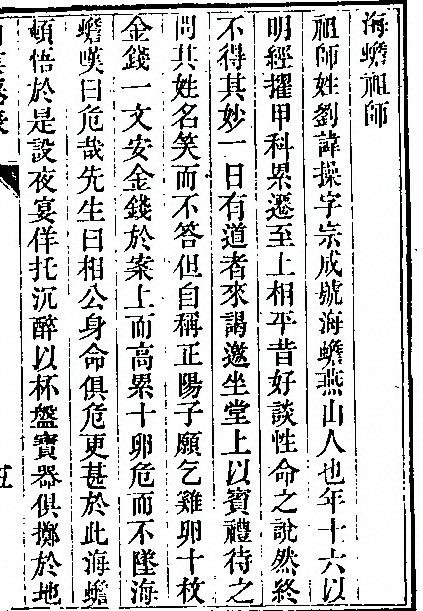 海蟾祖師
祖師姓劉諱操字宗成號海蟾燕山人也年十六以
明經擢甲科累遷至上相平昔好談性命之說然終
不得其妙一日有道者來謁邀坐堂上以賓禮待之
問其姓名笑而不答但自稱正陽子願乞雞卵十枚
金錢一文安金錢於案上而高累十卵危而不墜海
蟾嘆曰危哉先生曰相公身命俱危更甚於此海蟾
頓悟於是設夜宴佯托沉醉以杯盤寶器俱擲於地
五